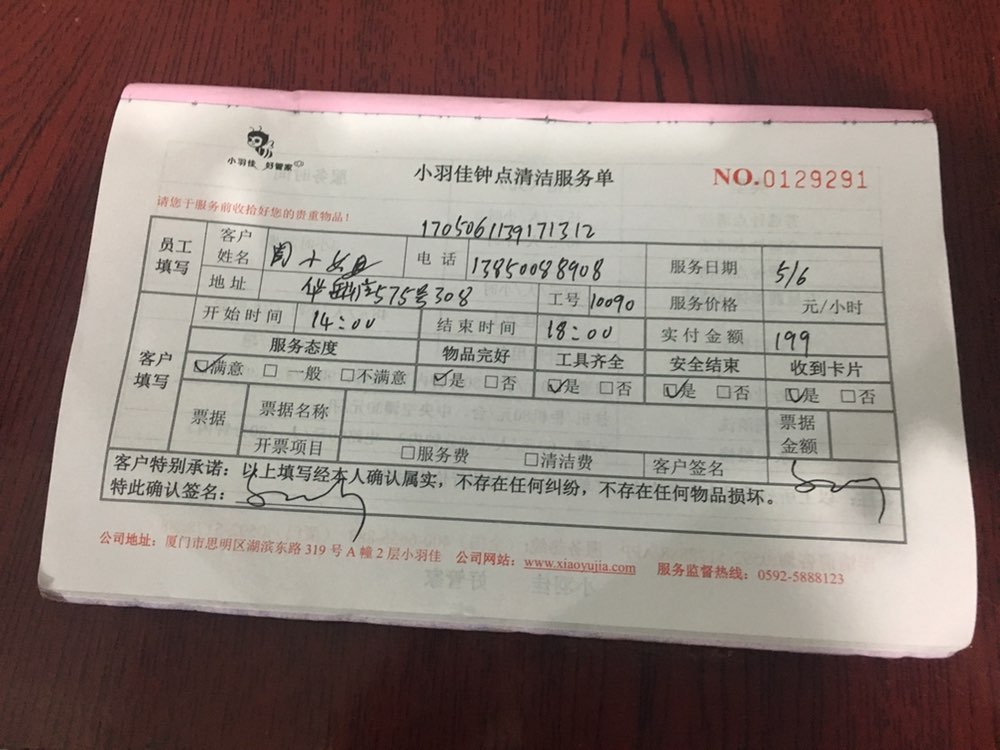 小羽佳 好管家
小羽佳钟点清洁服务单
NO.0129291
请您于服务前收拾好您的贵重物品!
170506139171312
员工填写 客户姓名 电话 13850088908 服务日期 5/6
地址 575号308 工号 10090 服务价格 元/小时
开始时间 14:00 结束时间 18:00 实付金额 199
客户填写 服务态度 物品完好 工具齐全 安全结束 收到卡片
☑满意 □一般 □不满意 ☑是 □否 ☑是 □否 ☑是 □否 ☑是 □否
票据 票据名称 票据金额
开票项目 □服务费 □清洁费 客户签名
客户特别承诺:以上填写经本人确认属实,不存在任何纠纷,不存在任何物品损坏。
特此确认签名:
公司地址:厦门市思明区湖滨东路 319 号 A 幢 2 层小羽佳 公司网站:www.xiaoyujia.com 服务监督热线:0592-5888123